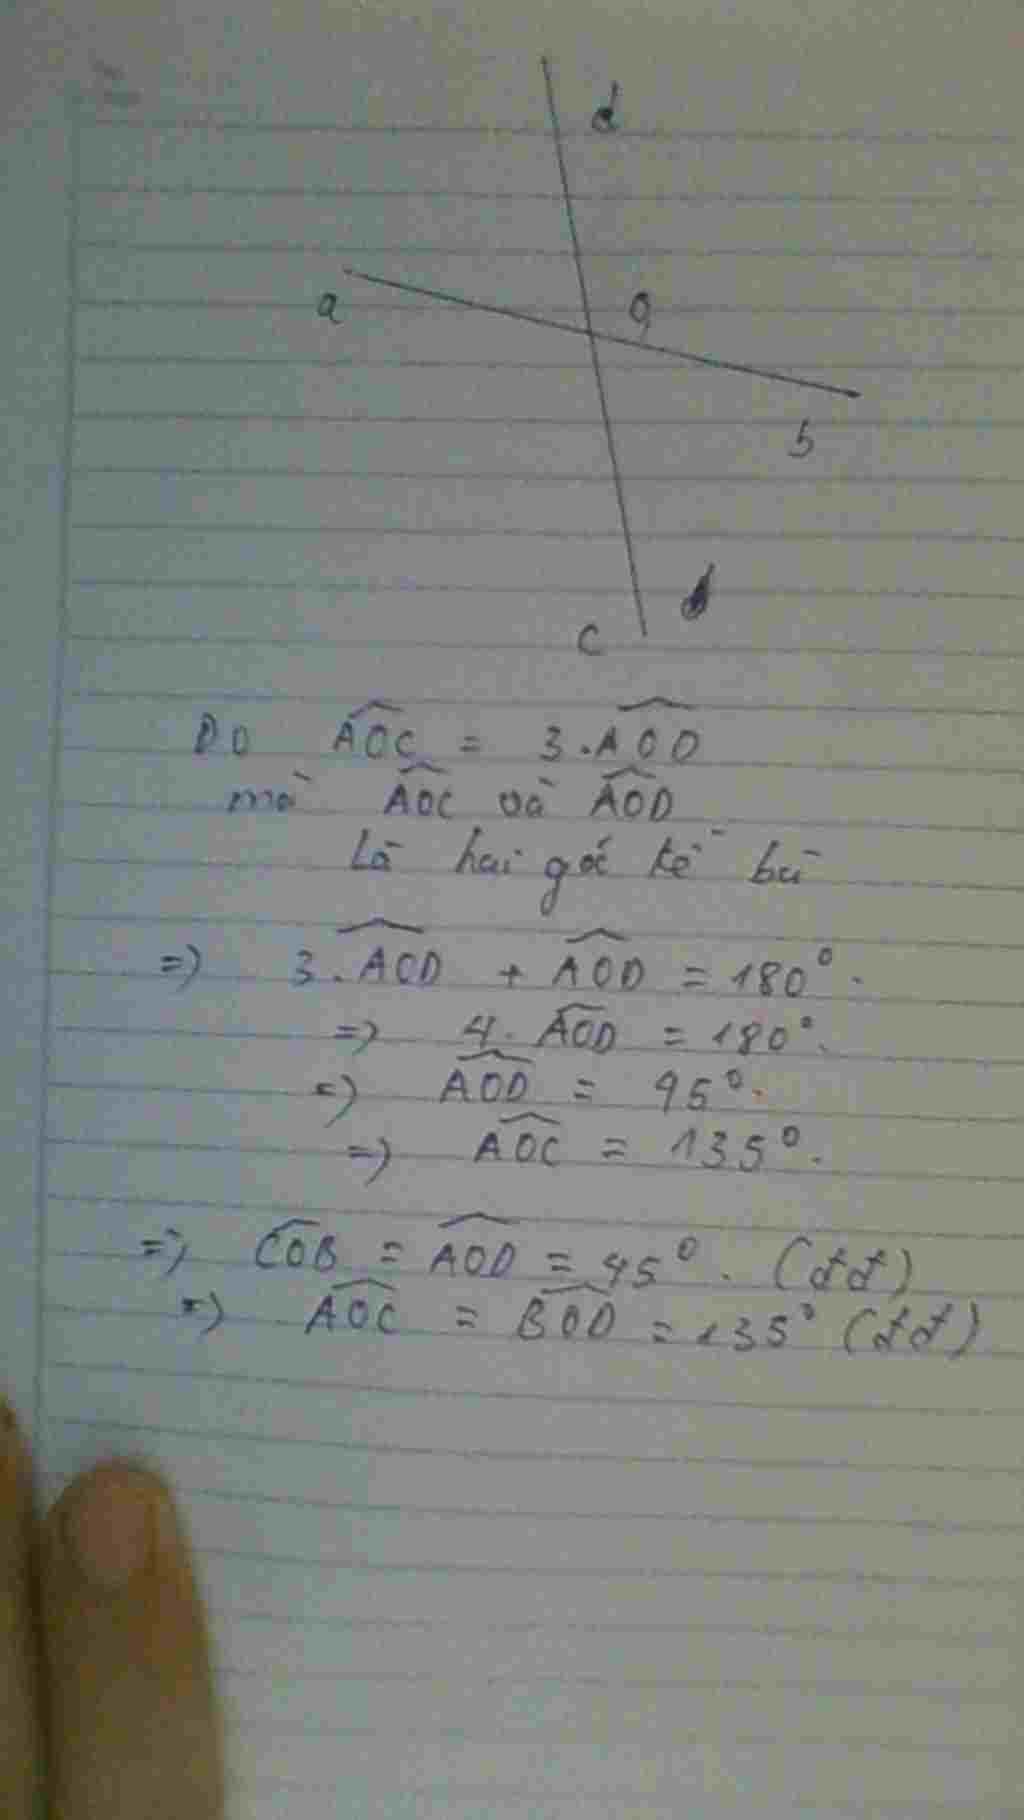 d
a
O
b
c
Do AOC = 3.AOD
mà AOC và AOD
Là hai góc kề bù
=> 3.AOD + AOD = 180°.
=> 4.AOD = 180°.
=> AOD = 45°.
=> AOC = 135°.
=> COB = AOD = 45°. (đđ)
=> AOC = BOD = 135° (đđ)